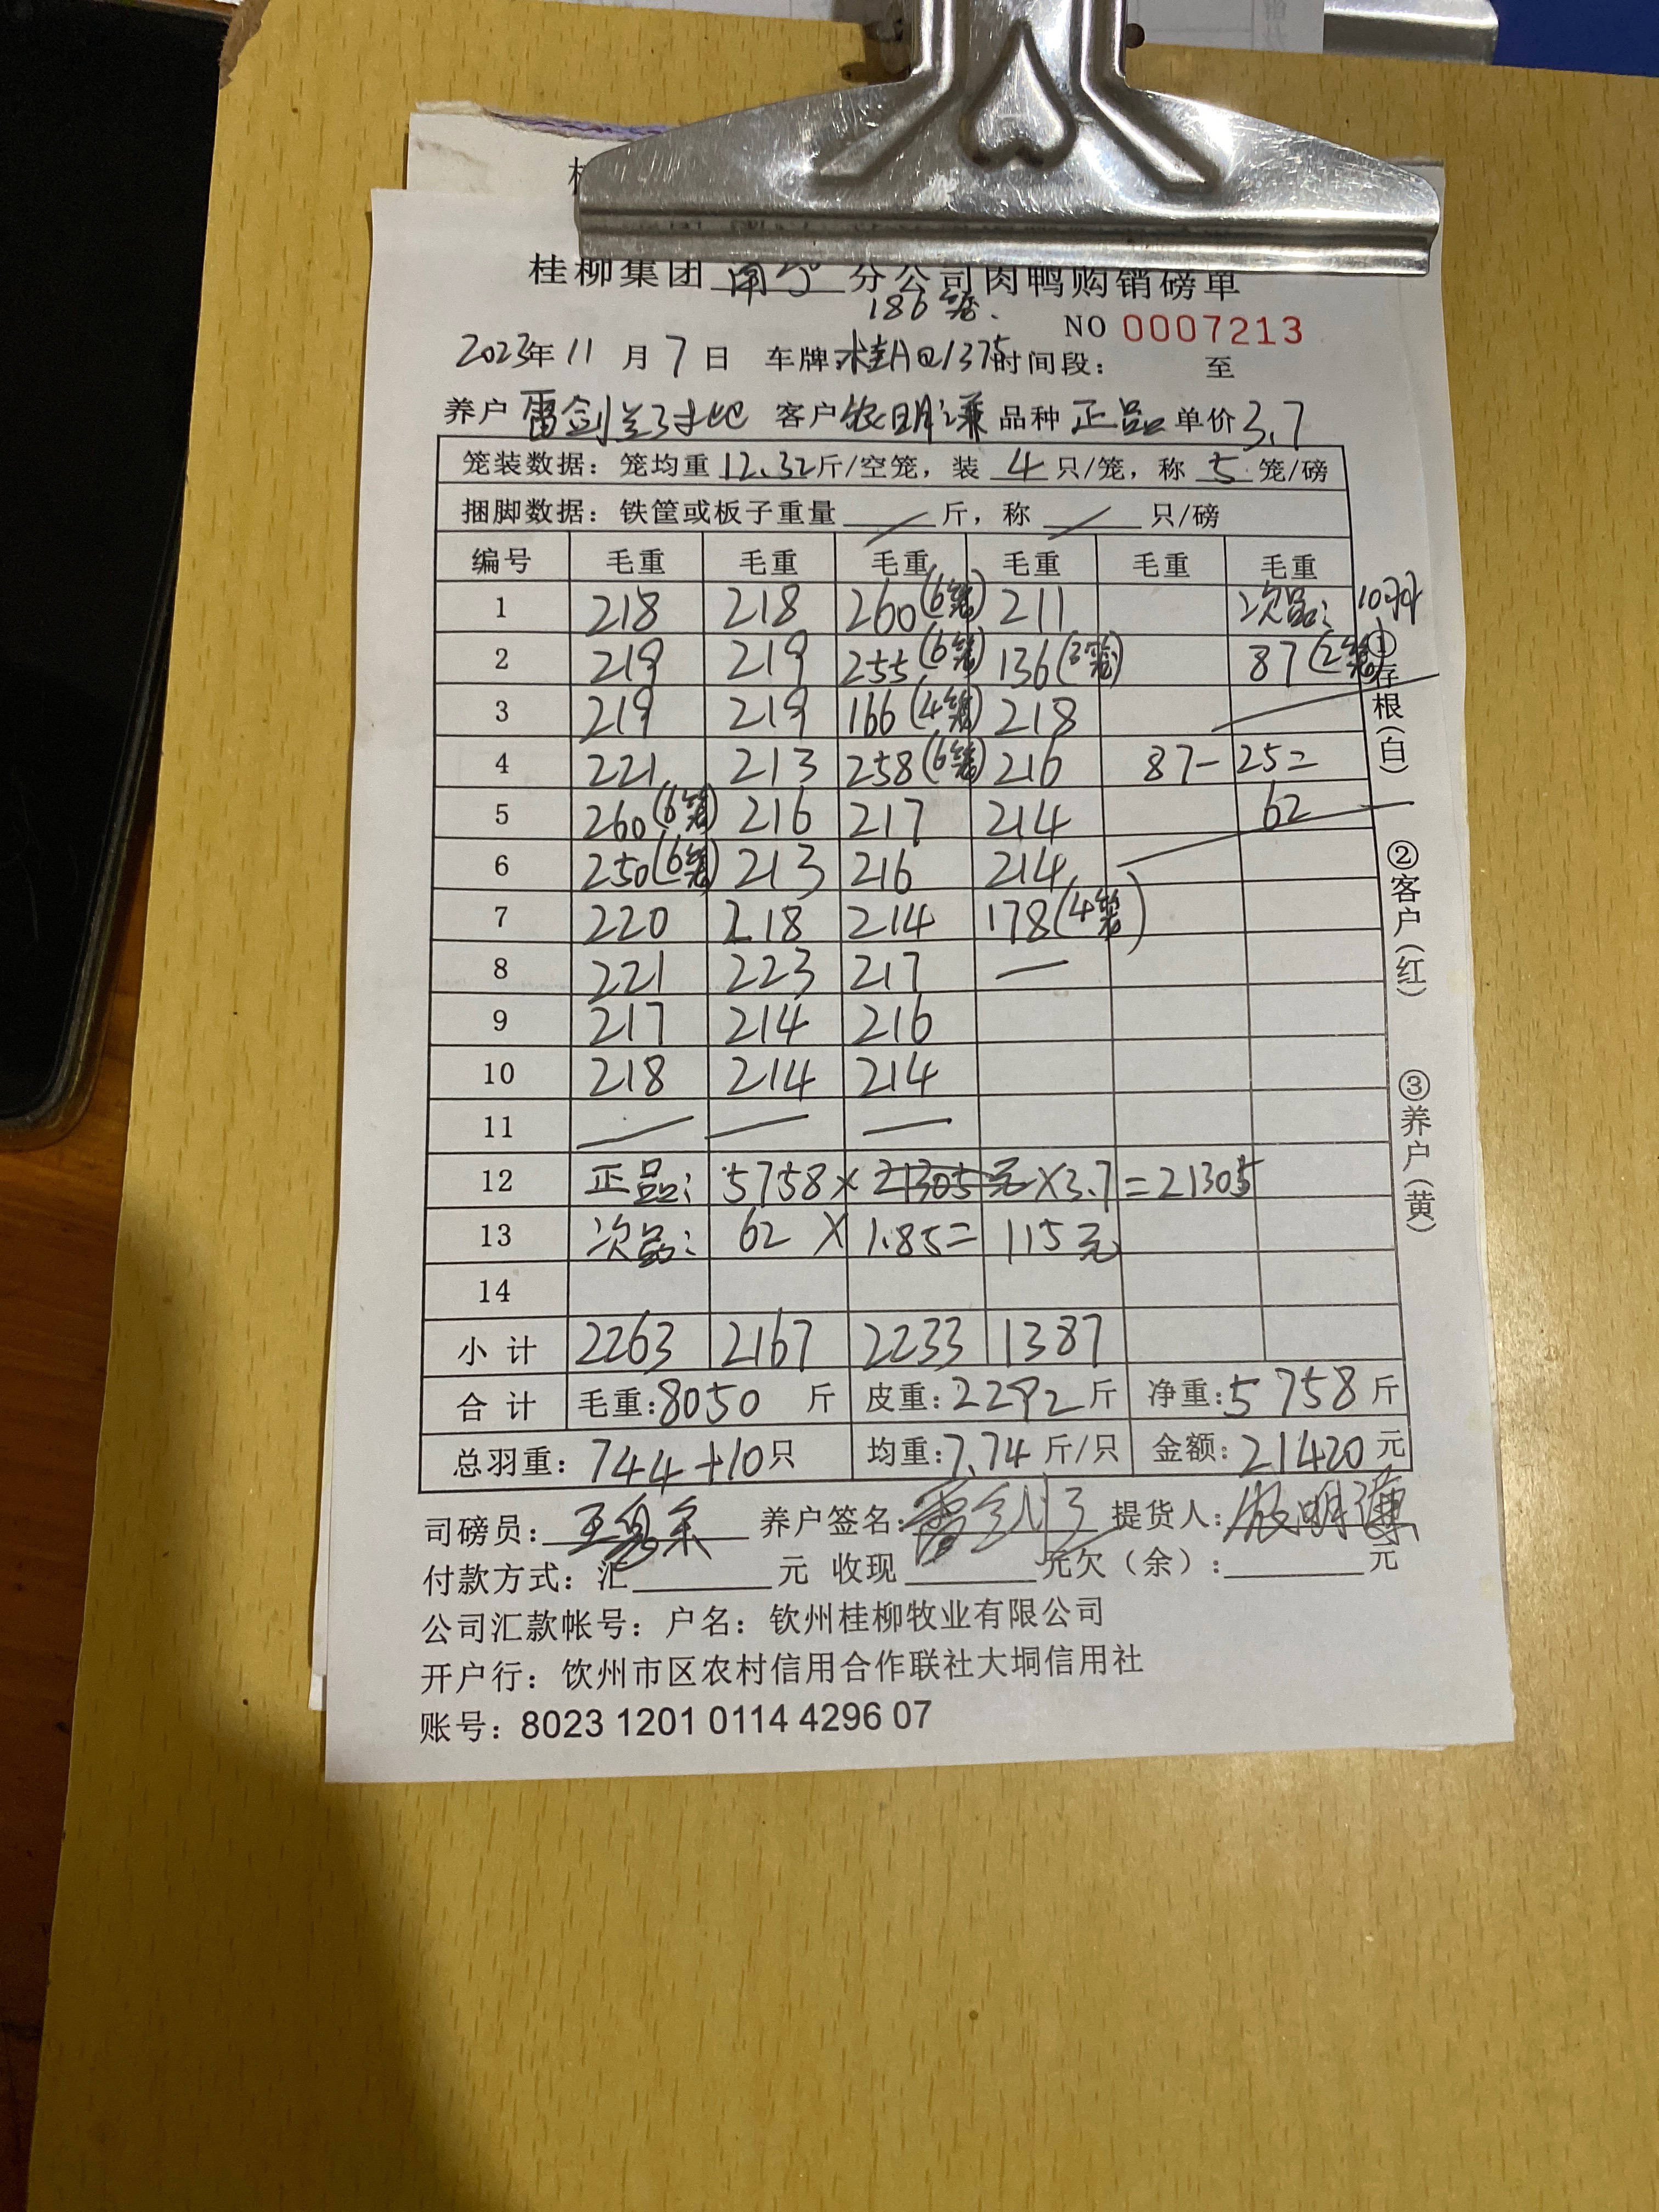 桂柳集团 南宁 分公司肉鸭购销磅单
186笼.
NO 0007213
2023年 11 月 7 日 车牌:桂A@1375 时间段： 至
养户 雷剑兰 客户 农明谦 品种 正品 单价 3.7
笼装数据：笼均重 12.32 斤/空笼，装 4 只/笼，称 5 笼/磅
捆脚数据：铁筐或板子重量 斤，称 只/磅
编号 毛重 毛重 毛重 毛重 毛重 毛重
1 218 218 260(6笼) 211 次品: 10只
2 219 219 255(6笼) 136(3笼) 87(2笼)
3 219 219 166(4笼) 218
4 221 213 258(6笼) 216 87-25=
5 260(6笼) 216 217 214 62
6 250(6笼) 213 216 214
7 220 218 214 178(4笼)
8 221 223 217 —
9 217 214 216
10 218 214 214
11 — — —
12 正品: 5758× 21305元 ×3.7=21305
13 次品: 62 × 1.85= 115元
14
小计 2263 2167 2233 1387
合计 毛重:8050 斤 皮重:2292 斤 净重:5758 斤
总羽重：744+10 只 均重:7.74 斤/只 金额:21420 元
司磅员: 养户签名: 提货人: 农明谦
付款方式：汇 元 收现 元欠（余）: 元
公司汇款帐号：户名：钦州桂柳牧业有限公司
开户行：饮州市区农村信用合作联社大垌信用社
账号：8023 1201 0114 4296 07
①存根(白)
②客户(红)
③养户(黄)